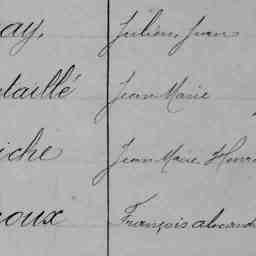 ay, Julien, Jean
taillé Jean Marie
iche Jean Marie Henri
oux François alexand